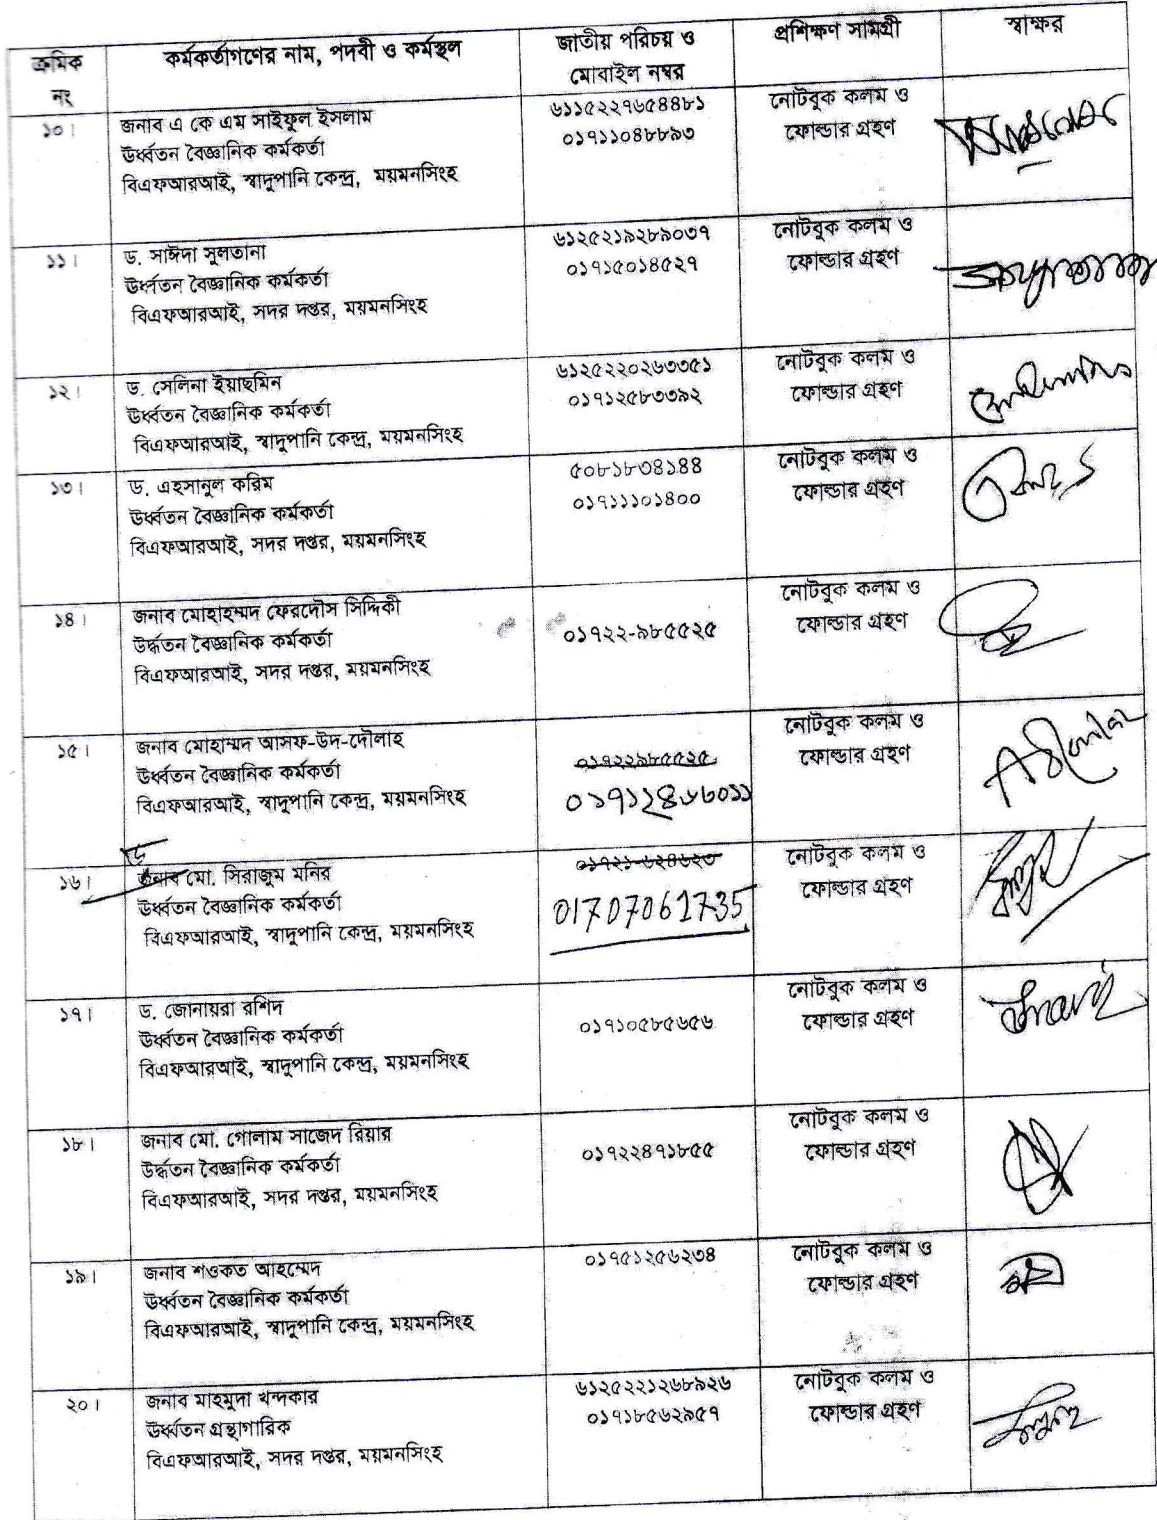 ক্রমিক নং
কর্মকর্তাগণের নাম, পদবী ও কর্মস্থল
জাতীয় পরিচয় ও
মোবাইল নম্বর
প্রশিক্ষণ সামগ্রী
স্বাক্ষর
১০।
জনাব এ কে এম সাইফুল ইসলাম
ঊর্ধ্বতন বৈজ্ঞানিক কর্মকর্তা
বিএফআরআই, স্বাদুপানি কেন্দ্র, ময়মনসিংহ
৬১১৫২২৭৬৫৪৪৮১
০১৭১১০৪৮৮৯৩
নোটবুক কলম ও
ফোল্ডার গ্রহণ
১১।
ড. সাঈদা সুলতানা
ঊর্ধ্বতন বৈজ্ঞানিক কর্মকর্তা
বিএফআরআই, সদর দপ্তর, ময়মনসিংহ
৬১২৫২১৯২৮৯০৩৭
০১৭১৫০১৪৫২৭
নোটবুক কলম ও
ফোল্ডার গ্রহণ
১২।
ড. সেলিনা ইয়াছমিন
ঊর্ধ্বতন বৈজ্ঞানিক কর্মকর্তা
বিএফআরআই, স্বাদুপানি কেন্দ্র, ময়মনসিংহ
৬১২৫২২০২৬৩৩৫১
০১৭১২৫৮৩৩৯২
নোটবুক কলম ও
ফোল্ডার গ্রহণ
১৩।
ড. এহসানুল করিম
ঊর্ধ্বতন বৈজ্ঞানিক কর্মকর্তা
বিএফআরআই, সদর দপ্তর, ময়মনসিংহ
৫০৮১৮৩৪১৪৪
০১৭১১১০১৪০০
নোটবুক কলম ও
ফোল্ডার গ্রহণ
১৪।
জনাব মোহাহম্মদ ফেরদৌস সিদ্দিকী
উর্দ্ধতন বৈজ্ঞানিক কর্মকর্তা
বিএফআরআই, সদর দপ্তর, ময়মনসিংহ
০১৭২২-৯৮৫৫২৫
নোটবুক কলম ও
ফোল্ডার গ্রহণ
১৫।
জনাব মোহাম্মদ আসফ-উদ-দৌলাহ
ঊর্ধ্বতন বৈজ্ঞানিক কর্মকর্তা
বিএফআরআই, স্বাদুপানি কেন্দ্র, ময়মনসিংহ
০১৭২২৯৮৫৫২৫
নোটবুক কলম ও
ফোল্ডার গ্রহণ
১৬।
ড
জনাব মো. সিরাজুম মনির
ঊর্ধ্বতন বৈজ্ঞানিক কর্মকর্তা
বিএফআরআই, স্বাদুপানি কেন্দ্র, ময়মনসিংহ
০১৭২১-৬২৪৬২৩
01707061735
নোটবুক কলম ও
ফোল্ডার গ্রহণ
১৭।
ড. জোনায়রা রশিদ
ঊর্ধ্বতন বৈজ্ঞানিক কর্মকর্তা
বিএফআরআই, স্বাদুপানি কেন্দ্র, ময়মনসিংহ
০১৭১০৫৮৫৬৫৬
নোটবুক কলম ও
ফোল্ডার গ্রহণ
১৮।
জনাব মো. গোলাম সাজেদ রিয়ার
উর্দ্ধতন বৈজ্ঞানিক কর্মকর্তা
বিএফআরআই, সদর দপ্তর, ময়মনসিংহ
০১৭২২৪৭১৮৫৫
নোটবুক কলম ও
ফোল্ডার গ্রহণ
১৯।
জনাব শওকত আহম্মেদ
ঊর্ধ্বতন বৈজ্ঞানিক কর্মকর্তা
বিএফআরআই, স্বাদুপানি কেন্দ্র, ময়মনসিংহ
০১৭৫১২৫৬২৩৪
নোটবুক কলম ও
ফোল্ডার গ্রহণ
২০।
জনাব মাহমুদা খন্দকার
ঊর্ধ্বতন গ্রন্থাগারিক
বিএফআরআই, সদর দপ্তর, ময়মনসিংহ
৬১২৫২২১২৬৮৯২৬
০১৭১৮৫৬২৯৫৭
নোটবুক কলম ও
ফোল্ডার গ্রহণ